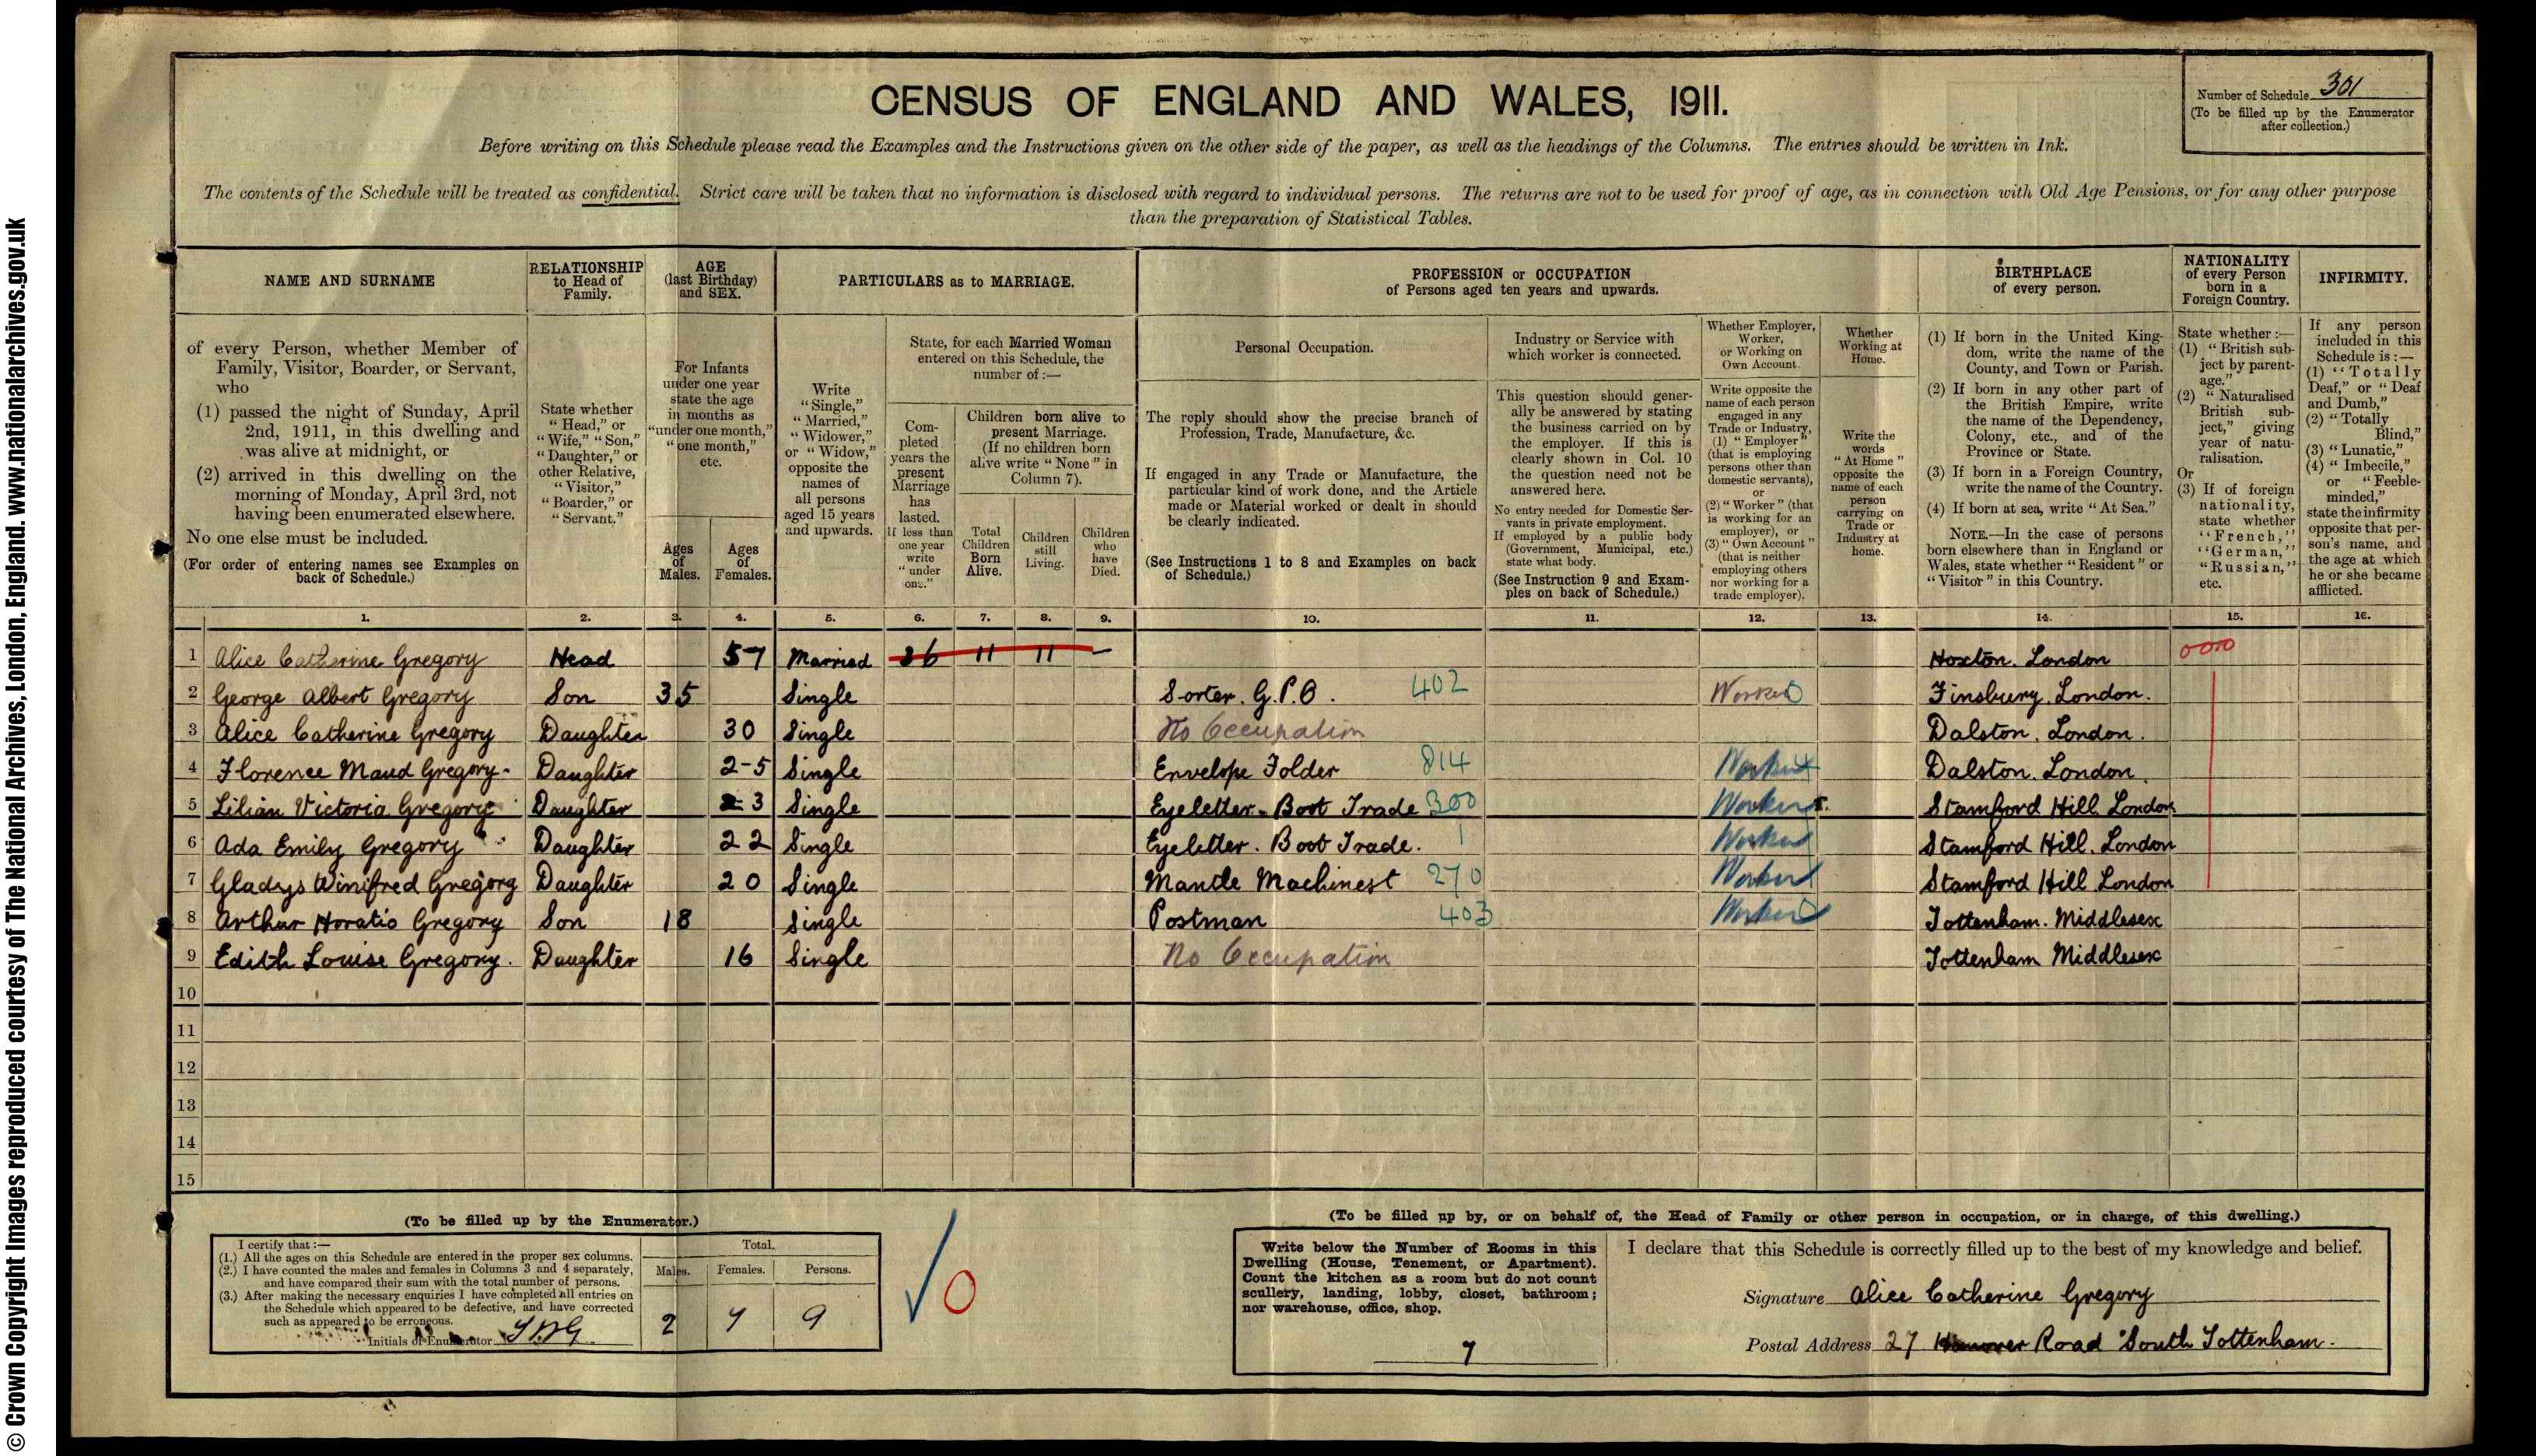 © Crown Copyright Images reproduced courtesy of The National Archives, London, England. www.nationalarchives.gov.uk
CENSUS OF ENGLAND AND WALES, 1911.
Number of Schedule 301
(To be filled up by the Enumerator
after collection.)
Before writing on this Schedule please read the Examples and the Instructions given on the other side of the paper, as well as the headings of the Columns. The entries should be written in Ink.
The contents of the Schedule will be treated as confidential. Strict care will be taken that no information is disclosed with regard to individual persons. The returns are not to be used for proof of age, as in connection with Old Age Pensions, or for any other purpose
than the preparation of Statistical Tables.
NAME AND SURNAME
of every Person, whether Member of
Family, Visitor, Boarder, or Servant,
who
(1) passed the night of Sunday, April
2nd, 1911, in this dwelling and
was alive at midnight, or
(2) arrived in this dwelling on the
morning of Monday, April 3rd, not
having been enumerated elsewhere.
No one else must be included.
(For order of entering names see Examples on
back of Schedule.)
RELATIONSHIP
to Head of
Family.
State whether
"Head," or
"Wife," "Son,"
"Daughter," or
other Relative,
"Visitor,"
"Boarder," or
"Servant."
AGE
(last Birthday)
and SEX.
For Infants
under one year
state the age
in months as
"under one month,"
"one month,"
etc.
Ages
of
Males.
Ages
of
Females.
PARTICULARS as to MARRIAGE.
Write
"Single,"
"Married,"
"Widower,"
or "Widow,"
opposite the
names of
all persons
aged 15 years
and upwards.
State, for each Married Woman
entered on this Schedule, the
number of :—
Com-
pleted
years the
present
Marriage
has
lasted.
If less than
one year
write
"under
one."
Children born alive to
present Marriage.
(If no children born
alive write "None" in
Column 7).
Total
Children
Born
Alive.
Children
still
Living.
Children
who
have
Died.
PROFESSION or OCCUPATION
of Persons aged ten years and upwards.
Personal Occupation.
The reply should show the precise branch of
Profession, Trade, Manufacture, &c.
If engaged in any Trade or Manufacture, the
particular kind of work done, and the Article
made or Material worked or dealt in should
be clearly indicated.
(See Instructions 1 to 8 and Examples on back
of Schedule.)
Industry or Service with
which worker is connected.
This question should gener-
ally be answered by stating
the business carried on by
the employer. If this is
clearly shown in Col. 10
the question need not be
answered here.
No entry needed for Domestic Ser-
vants in private employment.
If employed by a public body
(Government, Municipal, etc.)
state what body.
(See Instruction 9 and Exam-
ples on back of Schedule.)
Whether Employer,
Worker,
or Working on
Own Account.
Write opposite the
name of each person
engaged in any
Trade or Industry,
(1) "Employer"
(that is employing
persons other than
domestic servants),
or
(2) "Worker" (that
is working for an
employer), or
(3) "Own Account"
(that is neither
employing others
nor working for a
trade employer).
Whether
Working at
Home.
Write the
words
"At Home"
opposite the
name of each
person
carrying on
Trade or
Industry at
home.
BIRTHPLACE
of every person.
(1) If born in the United King-
dom, write the name of the
County, and Town or Parish.
(2) If born in any other part of
the British Empire, write
the name of the Dependency,
Colony, etc., and of the
Province or State.
(3) If born in a Foreign Country,
write the name of the Country.
(4) If born at sea, write "At Sea."
NOTE.—In the case of persons
born elsewhere than in England or
Wales, state whether "Resident" or
"Visitor" in this Country.
NATIONALITY
of every Person
born in a
Foreign Country.
State whether :—
(1) "British sub-
ject by parent-
age."
(2) "Naturalised
British sub-
ject," giving
year of natu-
ralisation.
Or
(3) If of foreign
nationality,
state whether
"French,"
"German,"
"Russian,"
etc.
INFIRMITY.
If any person
included in this
Schedule is :—
(1) "Totally
Deaf," or "Deaf
and Dumb,"
(2) "Totally
Blind,"
(3) "Lunatic,"
(4) "Imbecile,"
or "Feeble-
minded,"
state the infirmity
opposite that per-
son's name, and
the age at which
he or she became
afflicted.
1. 2. 3. 4. 5. 6. 7. 8. 9. 10. 11. 12. 13. 14. 15. 16.
1 Alice Catherine Gregory Head 57 Married 36 11 11 — Hoxton. London 0010
2 George Albert Gregory Son 35 Single Sorter. G.P.O. 402 Worker Finsbury. London.
3 Alice Catherine Gregory Daughter 30 Single No Occupation Dalston. London.
4 Florence Maud Gregory - Daughter 25 Single Envelope Folder 814 Worker Dalston. London.
5 Lilian Victoria Gregory Daughter 23 Single Eyeletter - Boot Trade 300 Worker Stamford Hill London
6 Ada Emily Gregory Daughter 22 Single Eyeletter. Boot Trade. 1 Worker Stamford Hill. London
7 Gladys Winifred Gregory Daughter 20 Single Mantle Machinest 270 Worker Stamford Hill London
8 Arthur Horatio Gregory Son 18 Single Postman 403 Worker Tottenham. Middlesex
9 Edith Louise Gregory. Daughter 16 Single No Occupation Tottenham Middlesex
10
11
12
13
14
15
(To be filled up by the Enumerator.)
I certify that :—
(1.) All the ages on this Schedule are entered in the proper sex columns.
(2.) I have counted the males and females in Columns 3 and 4 separately,
and have compared their sum with the total number of persons.
(3.) After making the necessary enquiries I have completed all entries on
the Schedule which appeared to be defective, and have corrected
such as appeared to be erroneous.
Initials of Enumerator
Total.
Males. Females. Persons.
2 7 9
0
(To be filled up by, or on behalf of, the Head of Family or other person in occupation, or in charge, of this dwelling.)
Write below the Number of Rooms in this
Dwelling (House, Tenement, or Apartment).
Count the kitchen as a room but do not count
scullery, landing, lobby, closet, bathroom ;
nor warehouse, office, shop.
7
I declare that this Schedule is correctly filled up to the best of my knowledge and belief.
Signature Alice Catherine Gregory
Postal Address 27 Hanover Road South Tottenham.